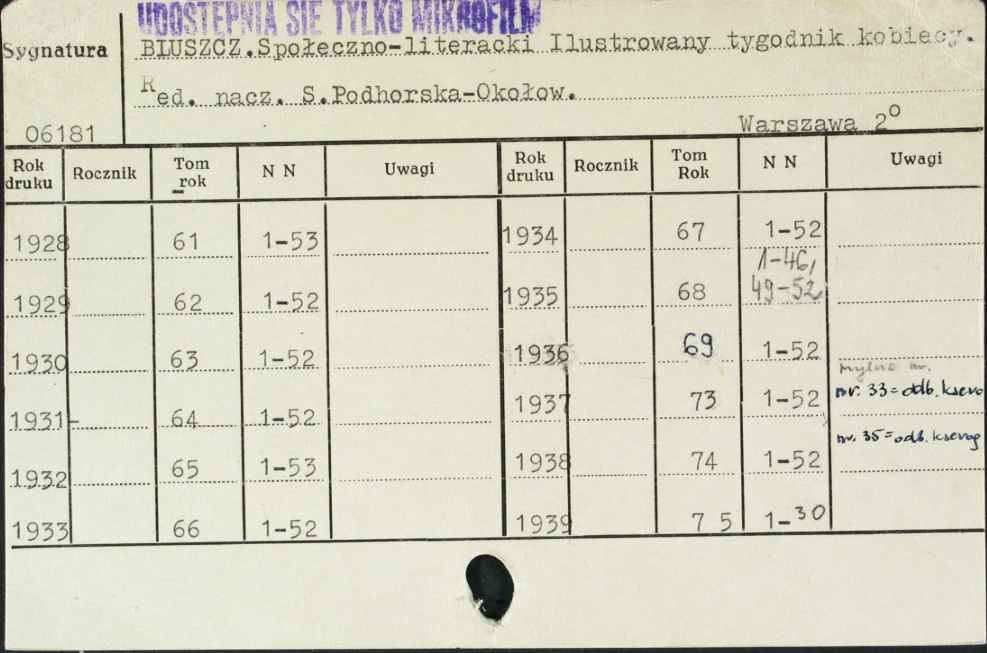 UDOSTĘPNIA SIĘ TYLKO MIKROFILM
Sygnatura
BLUSZCZ.Społeczno-literacki Ilustrowany tygodnik kobiecy.
Red. nacz. S.Podhorska-Okołow.
06181
Warszawa 2°
Rok druku Rocznik Tom rok N N Uwagi Rok druku Rocznik Tom Rok N N Uwagi
1928 61 1-53 1934 67 1-52
1929 62 1-52 1935 68 1-46, 49-52
1930 63 1-52 1936 69 1-52
mylne nr.
1931- 64 1-52 1937 73 1-52 nr. 33=odb. ksero
1932 65 1-53 1938 74 1-52 nr. 35=odb. kserog
1933 66 1-52 1939 7 5 1-30